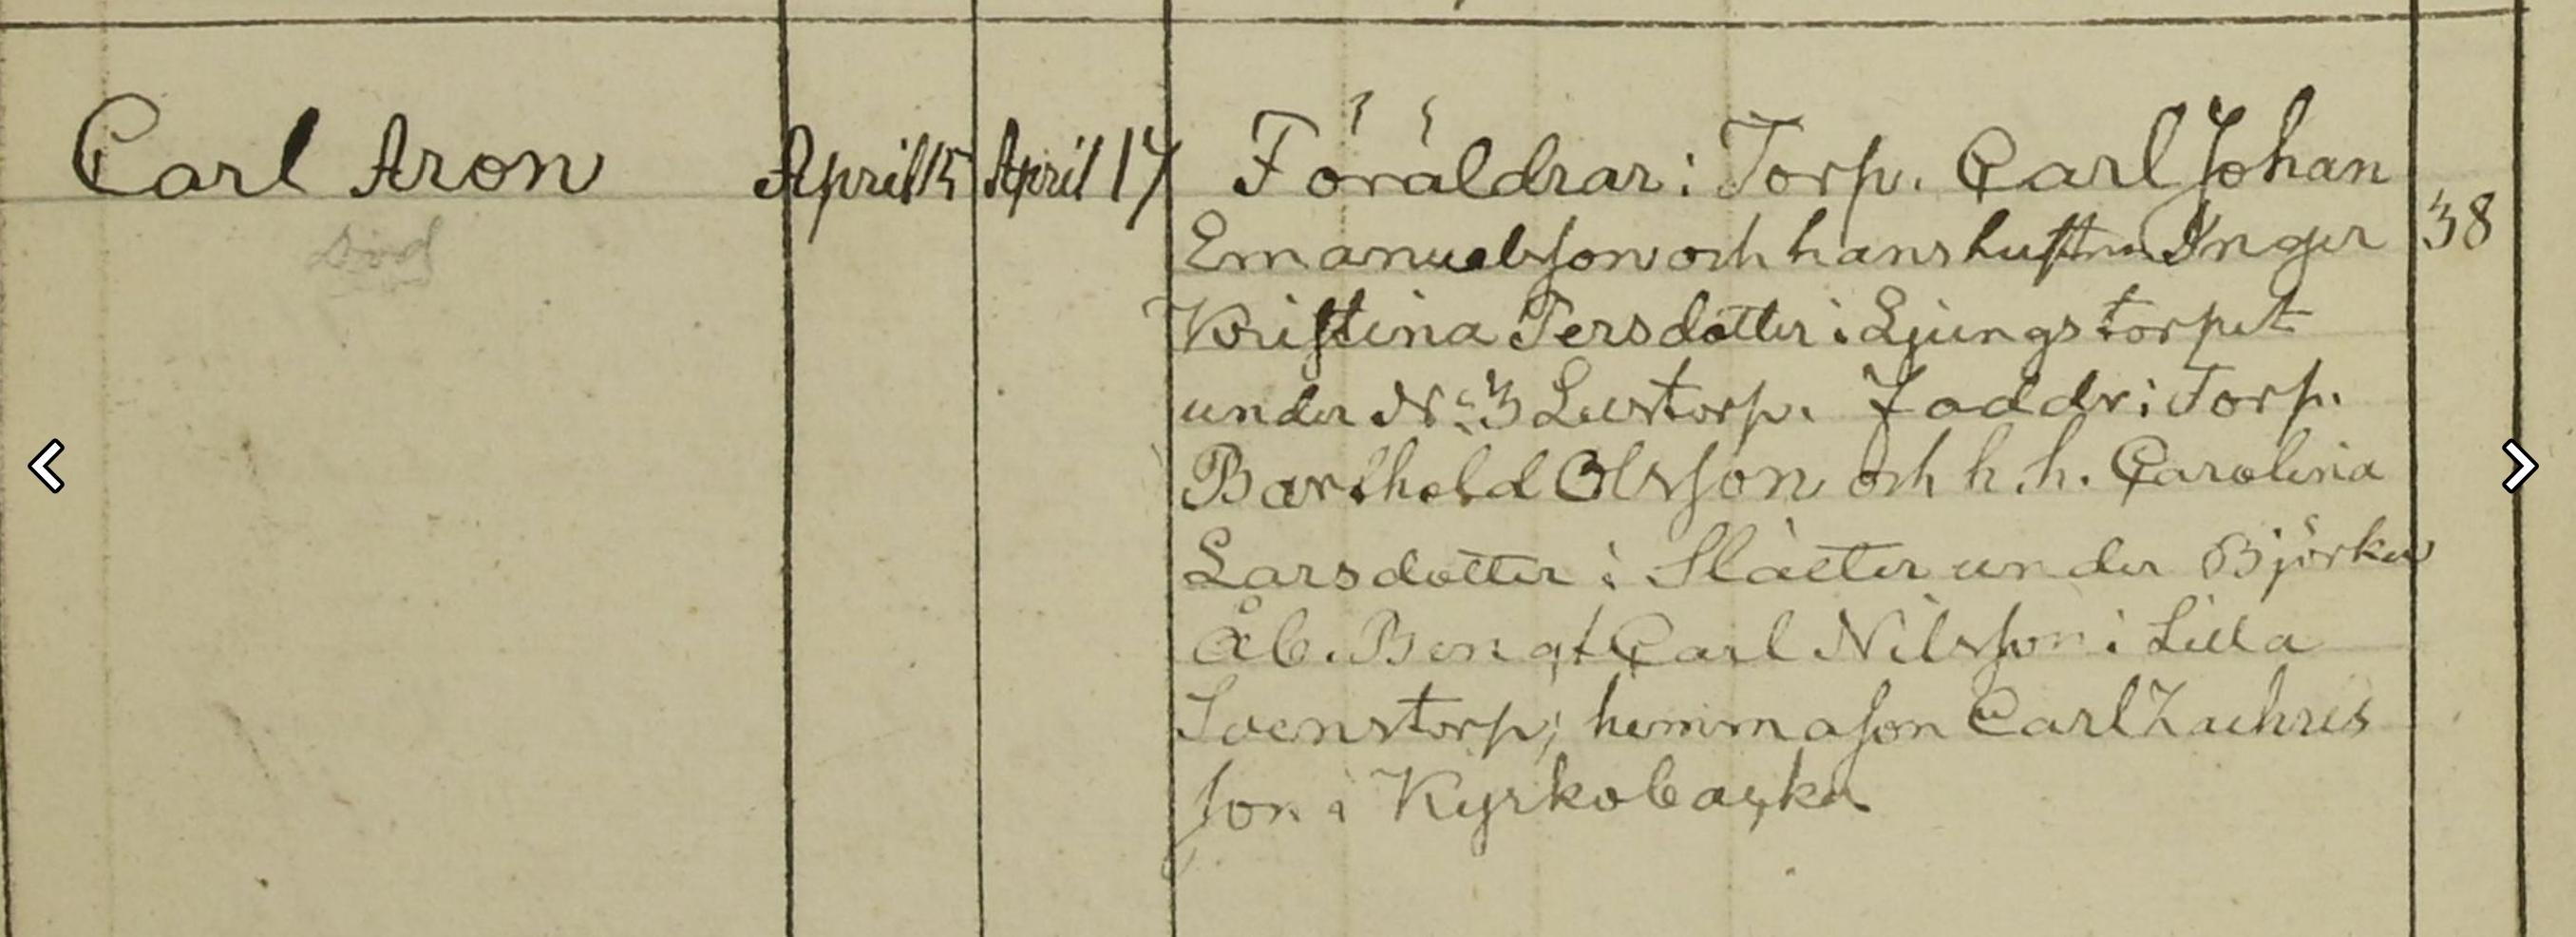 Carl Aron
död
April 15
April 17
Föräldrar: Torp. Carl Johan
Emanuelsson och hans hustru Inger
Kristina Persdotter i Ljungstorpet
under No 3 Lustorp. Faddr: Torp.
Barthold Olsson och h. h. Carolina
Larsdotter i Slätter under Björke
Åb. Bengt Carl Nilsson i Lilla
Svenstorp; hemmason Carl Zachris
son i Kyrkobacka
38